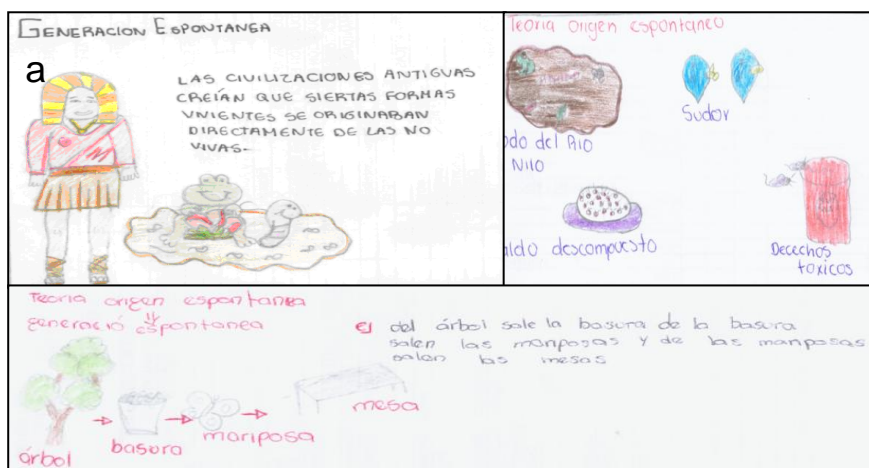 GENERACION ESPONTANEA
a
LAS CIVILIZACIONES ANTIGUAS
CREÍAN QUE SIERTAS FORMAS
VIVIENTES SE ORIGINABAN
DIRECTAMENTE DE LAS NO
VIVAS.
Teoria origen espontaneo
Sudor
odo del RIO
NIlO
aldo descompuesto
Decechos
toxicos
Teoria origen espontanea
generació espontanea
Ej del árbol sale la basura de la basura
salen las mariposas y de las mariposas
salen las mesas
árbol
basura
mariposa
mesa